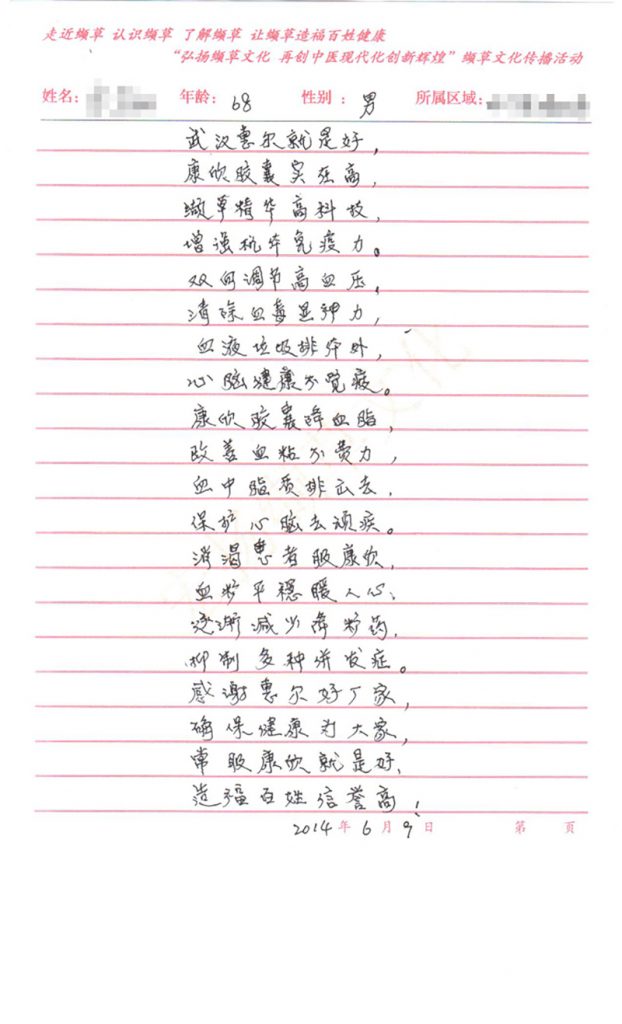 走近缬草 认识缬草 了解缬草 让缬草造福百姓健康
“弘扬缬草文化 再创中医现代化创新辉煌”缬草文化传播活动
姓名： 年龄：68 性别：男 所属区域：
武汉惠尔就是好，
康欣胶囊实在高，
缬草精华高科技，
增强机体免疫力。
双向调节高血压，
清除血毒是神力，
血液垃圾排体外，
心脑健康不觉疲。
康欣胶囊降血脂，
改善血粘不费力，
血中脂质排出去，
保护心脑去顽疾。
消渴患者服康欣，
血糖平稳暖人心，
逐渐减少降糖药，
抑制多种并发症。
感谢惠尔好厂家，
确保健康为大家，
常服康欣就是好，
造福百姓信誉高！
2014年6月9日 第 页